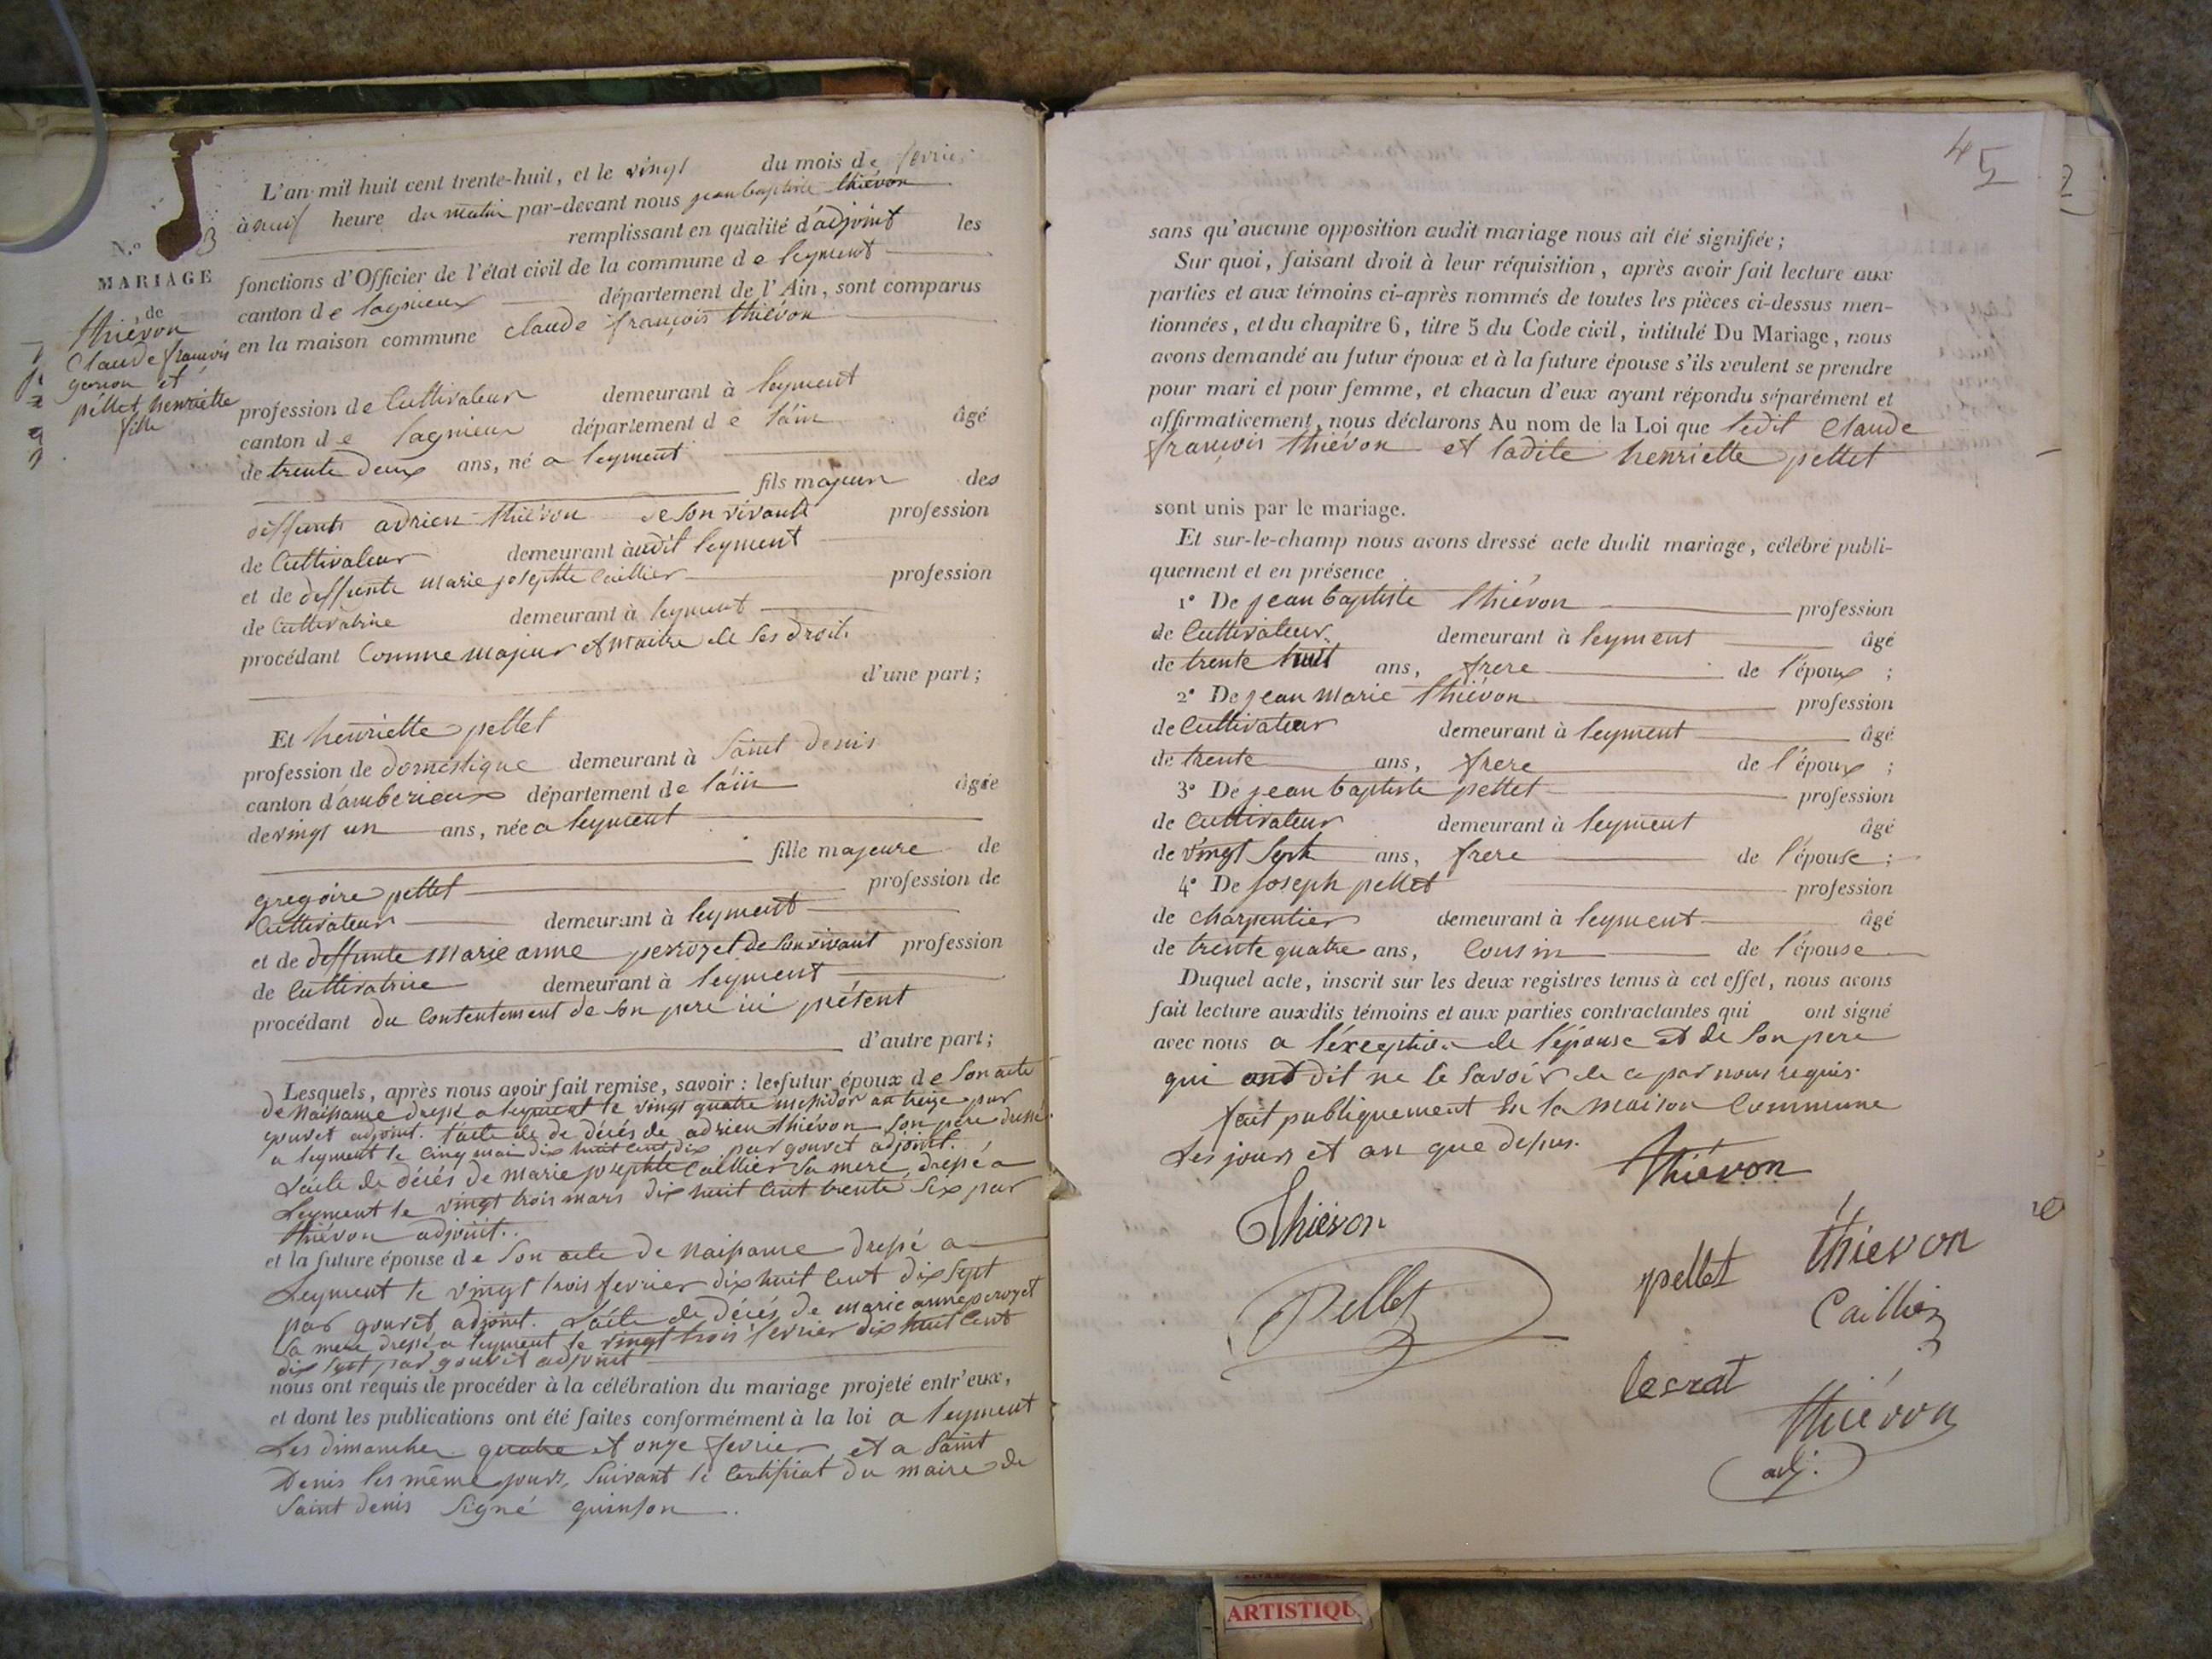 N.o 3
MARIAGE
de
thiévon
Claude françois
garson et
pellet henriette
fille
L'an mil huit cent trente-huit, et le vingt du mois de fevrier
à neuf heure du matin par-devant nous jean baptiste thiévon
remplissant en qualité d'adjoint les
fonctions d'Officier de l'état civil de la commune de leyment
canton de lagnieux département de l'Ain, sont comparus
en la maison commune claude françois thiévon
profession de Cultivateur demeurant à leyment
canton de lagnieux département de l'ain âgé
de trente deux ans, né a leyment
fils majeur des
deffunts adrien thiévon de son vivants profession
de Cultivateur demeurant audit leyment
et de deffunte marie josephte Caillier profession
de Cultivatrice demeurant à leyment
procédant Comme majeur et maitre de ses droits
d'une part;
Et henriette pellet
profession de domestique demeurant à Saint denis
canton d'amberieux département de l'ain âgée
de vingt un ans, née a leyment
fille majeure de
gregoire pellet profession de
Cultivateur demeurant à leyment
et de deffunte Marie anne perrozet de son vivant profession
de Cultivatrice demeurant à leyment
procédant du Consentement de son pere ici présent
d'autre part;
Lesquels, après nous avoir fait remise, savoir : le futur époux de Son acte
de naissance dressé a leyment le vingt quatre messidor an treize par
gouvet adjoint. l'acte de de décés de adrien thiévon Son père dressé
a leyment le cinq mai dix huit cent dix par gouvet adjoint.
L'acte de décés de marie josephte Caillier sa mere, dressé a
Leyment le vingt trois mars dix huit cent trente six par
thiévon adjoint.
et la future épouse de Son acte de Naissance dressé a
Leyment le vingt trois fevrier dix huit Cent dix sept
par gouvet adjoint. L'acte de décés de marie anne perrozet
Sa mere dressé a leyment le vingt trois fevrier dix huit Cent
dix sept par gouvet adjoint
nous ont requis de procéder à la célébration du mariage projeté entr'eux,
et dont les publications ont été faites conformément à la loi a leyment
Les dimanches quatre et onze fevrier et a Saint
Denis les même jours, Suivant le Certificat du maire de
Saint denis Signé quinson.
4 5
2
sans qu'aucune opposition audit mariage nous ait été signifiée;
Sur quoi, faisant droit à leur réquisition, après avoir fait lecture aux
parties et aux témoins ci-après nommés de toutes les pièces ci-dessus men-
tionnées, et du chapitre 6, titre 5 du Code civil, intitulé Du Mariage, nous
avons demandé au futur époux et à la future épouse s'ils veulent se prendre
pour mari et pour femme, et chacun d'eux ayant répondu séparément et
affirmativement, nous déclarons Au nom de la Loi que ledit Claude
françois thiévon et ladite henriette pellet
sont unis par le mariage.
Et sur-le-champ nous avons dressé acte dudit mariage, célébré publi-
quement et en présence
1° De jean baptiste thiévon profession
de Cultivateur demeurant à leyment âgé
de trente huit ans, frere de l'époux ;
2° De jean marie thiévon profession
de Cultivateur demeurant à leyment âgé
de trente ans, frere de l'époux ;
3° De jean baptiste pellet profession
de Cultivateur demeurant à leyment âgé
de vingt Sept ans, frere de l'épouse ;
4° De joseph pellet profession
de charpentier demeurant à leyment âgé
de trente quatre ans, Cousin de l'épouse
Duquel acte, inscrit sur les deux registres tenus à cet effet, nous avons
fait lecture auxdits témoins et aux parties contractantes qui ont signé
avec nous a l'éxception de l'épouse et de Son pere
qui ont dit ne le savoir de ce par nous requis.
fait publiquement En la maison Commune
Les jours et an que dessus.
thiévon
Thiévon
thiévon
pellet
Pellet
Caillier
lesrat
thiévon
adj.
ARTISTIQU